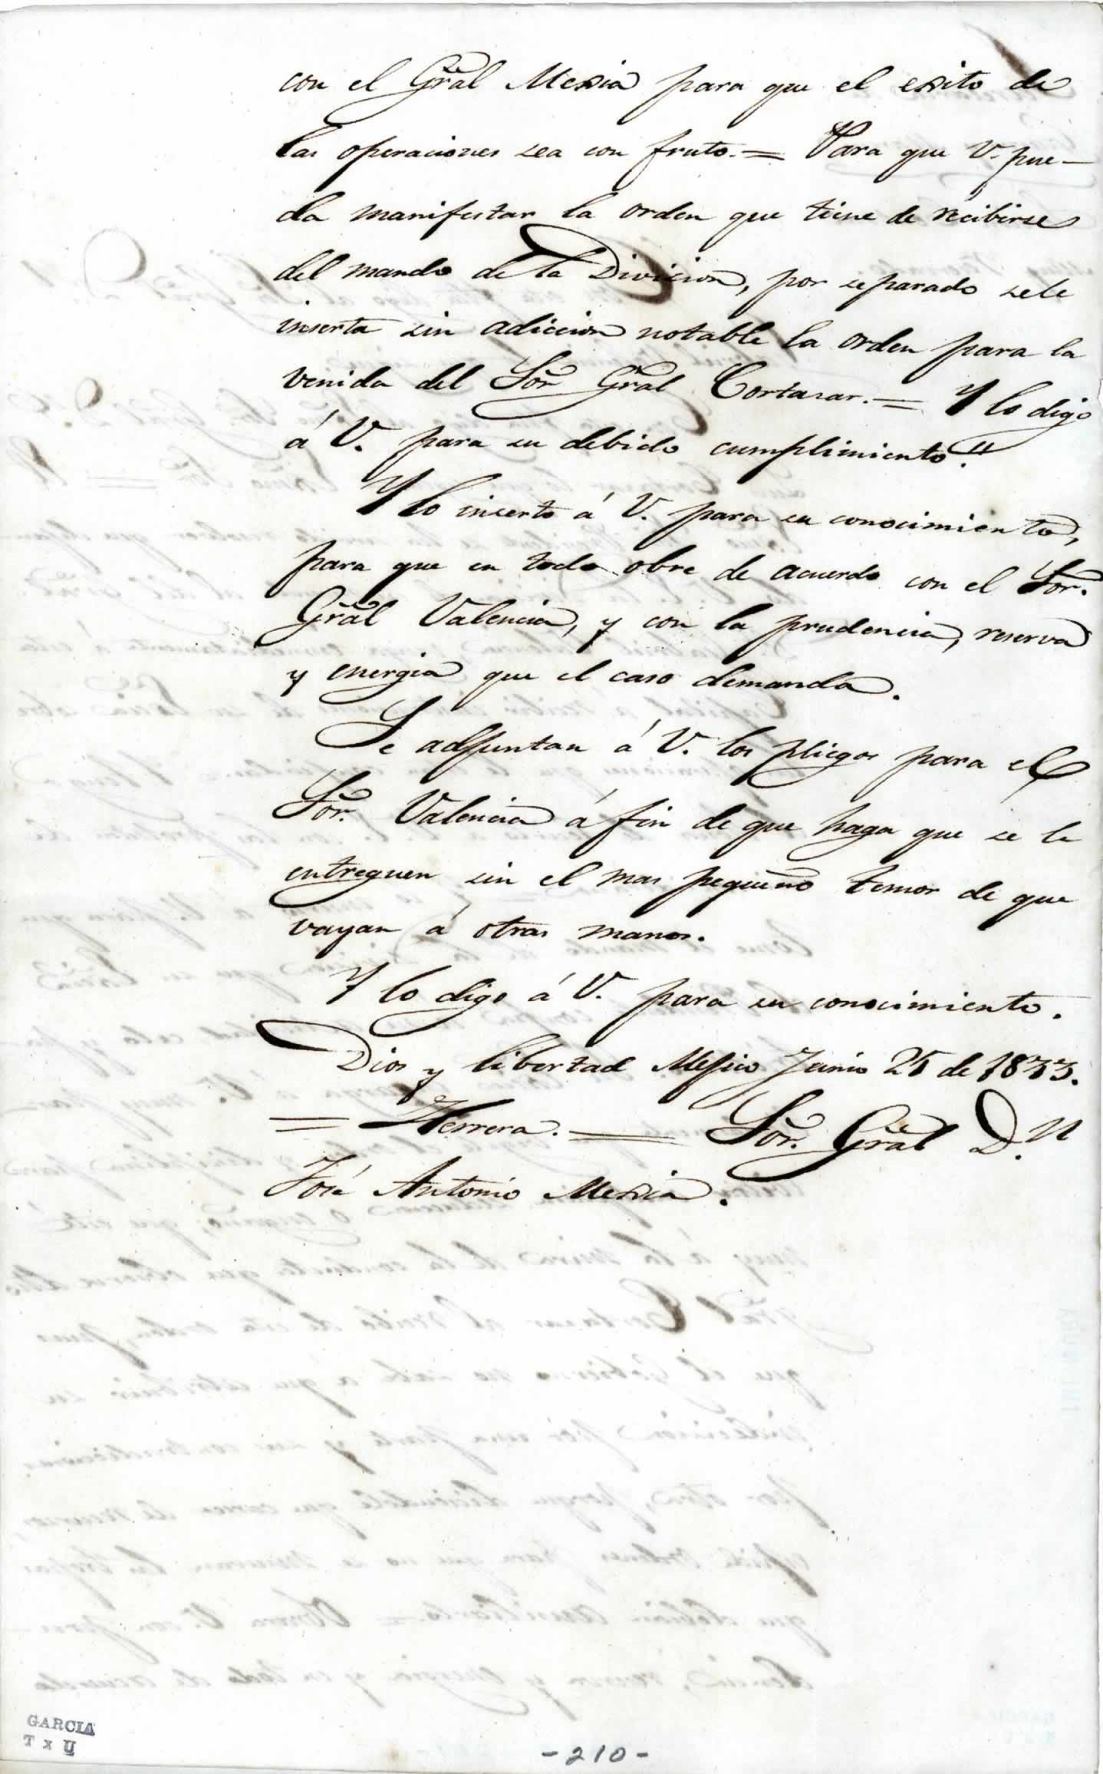 con el Grãl Mexia para que el exito de
las operaciones sea con fruto.= Para que V. pue-
da manifestar la orden que tiene de recibirse
del mando de la Division, por separado se le
inserta sin adiccion notable la orden para la
venida del Sor. Grãl Cortazar.= Y lo digo
á V. para su debido cumplimiento."
Y lo inserto á V. para su conocimiento,
para que en todo obre de acuerdo con el Sor.
Grãl Valencia, y con la prudencia, reserva
y energia que el caso demanda.
Se adjuntan á V. los pliegos para el
Sor. Valencia á fin de que haga que se le
entreguen sin el mas pequeño temor de que
vayan á otras manos.
Y lo digo á V. para su conocimiento.
Dios y libertad Mejico Junio 25 de 1833.
= Herrera. = Sor. Grãl D.n
José Antonio Mexia.
GARCIA
T x U
-210-